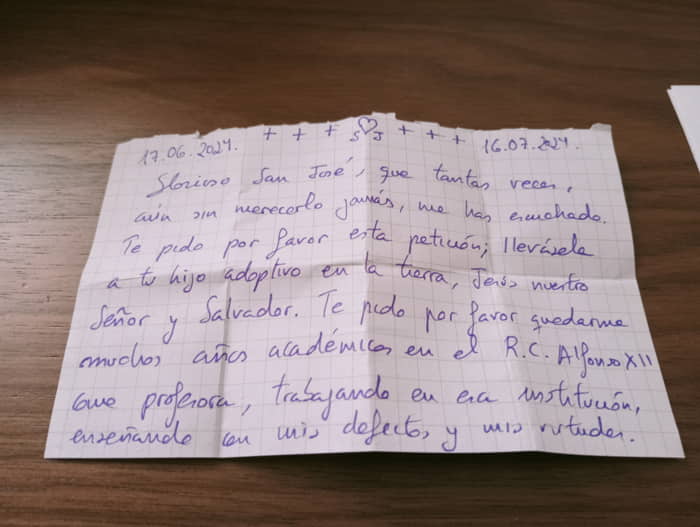 17.06.2024. + + + S♡J + + + 16.07.2024.
Glorioso San José, que tantas veces,
aún sin merecerlo jamás, me has escuchado.
Te pido por favor esta petición; llevásela
a tu hijo adoptivo en la tierra, Jesús nuestro
Señor y Salvador. Te pido por favor quedarme
muchos años académicos en el R.C. Alfonso XII
como profesora, trabajando en esa institución,
enseñando con mis defectos y mis virtudes.